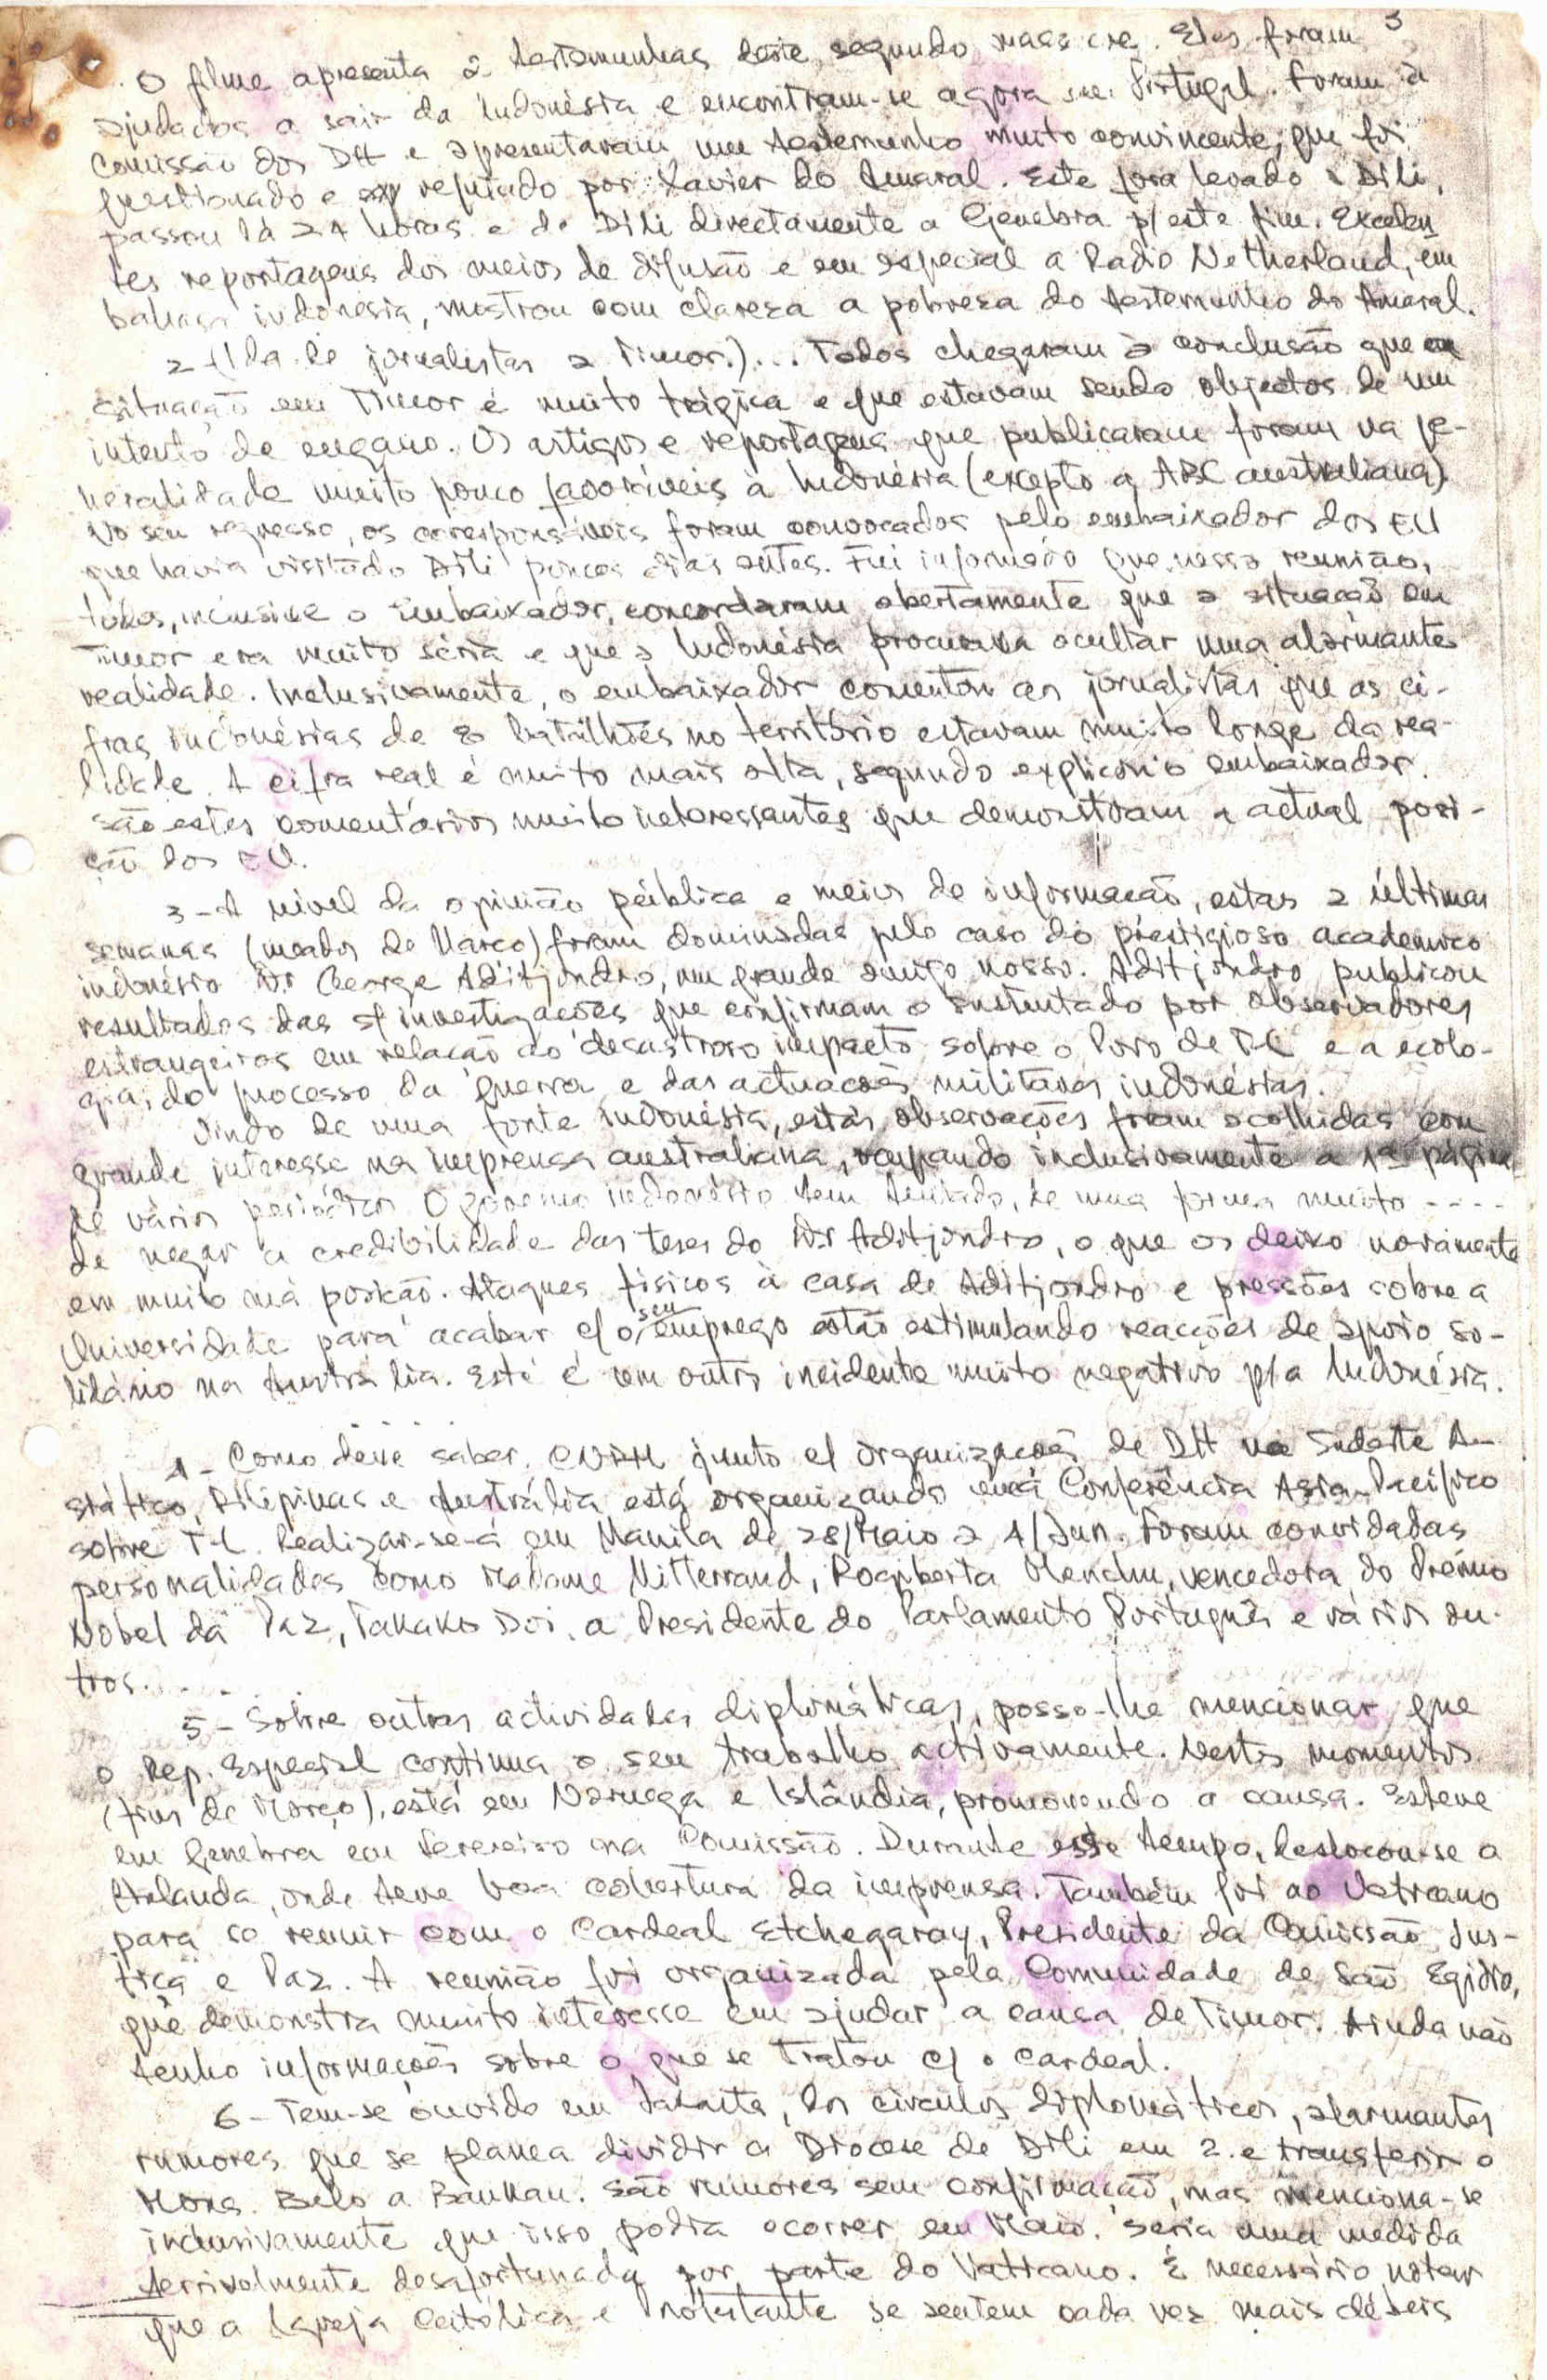 3
O filme apresenta 2 testemunhas deste segundo massacre. Eles foram
ajudados a sair da Indonésia e encontram-se agora em Portugal. Foram à
Comissão dos DH e apresentaram um testemunho muito convincente, que foi
questionado e refutado por Xavier do Amaral. Este fora levado a Dili,
passou lá 24 horas e de Dili directamente a Genebra p/ este fim. Excelen
tes reportagens dos meios de difusão e em especial a Radio Netherland, em
bahasa indonesia, mostrou com clareza a pobreza do testemunho do Amaral.
2 - (Ida de jornalistas a Timor.)... Todos chegaram à conclusão que a
situação em Timor é muito trágica e que estavam sendo objectos de um
intento de engano. Os artigos e reportagens que publicaram foram na ge-
neralidade muito pouco favoráveis à Indonésia (excepto a ABC australiana).
No seu regresso, os foram convocados pelo embaixador dos EU
que havia visitado Dili poucos dias antes. Fui informado que nessa reunião,
todos, inclusive o Embaixador, concordaram abertamente que a situação em
Timor era muito séria e que a Indonésia procurava ocultar uma alarmante
realidade. Inclusivamente, o embaixador comentou aos jornalistas que as ci-
fras indonésias de 8 batalhões no território estavam muito longe da rea-
lidade. A cifra real é muito mais alta, segundo explicou o embaixador.
São estes comentários muito interessantes que demonstram a actual posi-
ção dos EU.
3 - A nível da opinião pública e meios de informação, estas 2 últimas
semanas (meados de Março) foram dominadas pelo caso do prestigioso academico
indonésio Dr George Aditjondro, um grande amigo nosso. Aditjondro publicou
resultados das s/ investigações que confirmam o sustentado por observadores
estrangeiros em relação ao desastroso impacto sobre o Povo de T-L e a ecolo-
gia, do processo da guerra e das actuações militares indonésias.
Vindo de uma fonte indonésia, estas observações foram acolhidas com
grande interesse na imprensa australiana, ocupando inclusivamente a 1ª página
de vários periódicos. O governo indonésio tem tentado, de uma forma muito ....
de negar a credibilidade das teses do Dr Aditjondro, o que os deixa novamente
em muito má posição. Ataques físicos à casa de Aditjondro e pressões sobre a
Universidade para acabar c/ o seu emprego estão estimulando reacções de apoio so-
lidário na Austrália. Este é um outro incidente muito negativo p/a Indonésia.
. . . . . .
4 - Como deve saber, CNRM junto c/ organizações de DH no Sudeste A-
siático, Filipinas e Austrália está organizando uma Conferência Asia-Pacífico
sobre T-L. Realizar-se-á em Manila de 28/Maio a 4/Jun. Foram convidadas
personalidades como Madame Mitterrand, Rogoberta Menchu, vencedora do Prémio
Nobel da Paz, Takako Doi, a Presidente do Parlamento Português e vários ou-
tros. . . .
5 - Sobre outras actividades diplomáticas, posso-lhe mencionar que
o Rep. Especial continua o seu trabalho activamente. Nestes momentos
(fins de Março), está em Noruega e Islândia, promovendo a causa. Esteve
em Genebra em Fevereiro na Comissão. Durante esse tempo, deslocou-se a
Irlanda, onde teve boa cobertura da imprensa. Também foi ao Vaticano
para se reunir com o Cardeal Etchegaray, Presidente da Comissão Jus-
tiça e Paz. A reunião foi organizada pela Comunidade de São Egidio,
que demonstra muito interesse em ajudar a causa de Timor. Ainda não
tenho informações sobre o que se tratou c/ o Cardeal.
6 - Tem-se ouvido em Jakarta, dos círculos diplomáticos, alarmantes
rumores que se planea dividir a Diocese de Dili em 2 e transferir o
Mons. Belo a Baukau. São rumores sem confirmação, mas menciona-se
inclusivamente que isso podia ocorrer em Maio. Seria uma medida
terrivelmente desafortunada por parte do Vaticano. É necessário notar
que a Igreja Católica e Protestante se sentem cada vez mais débeis